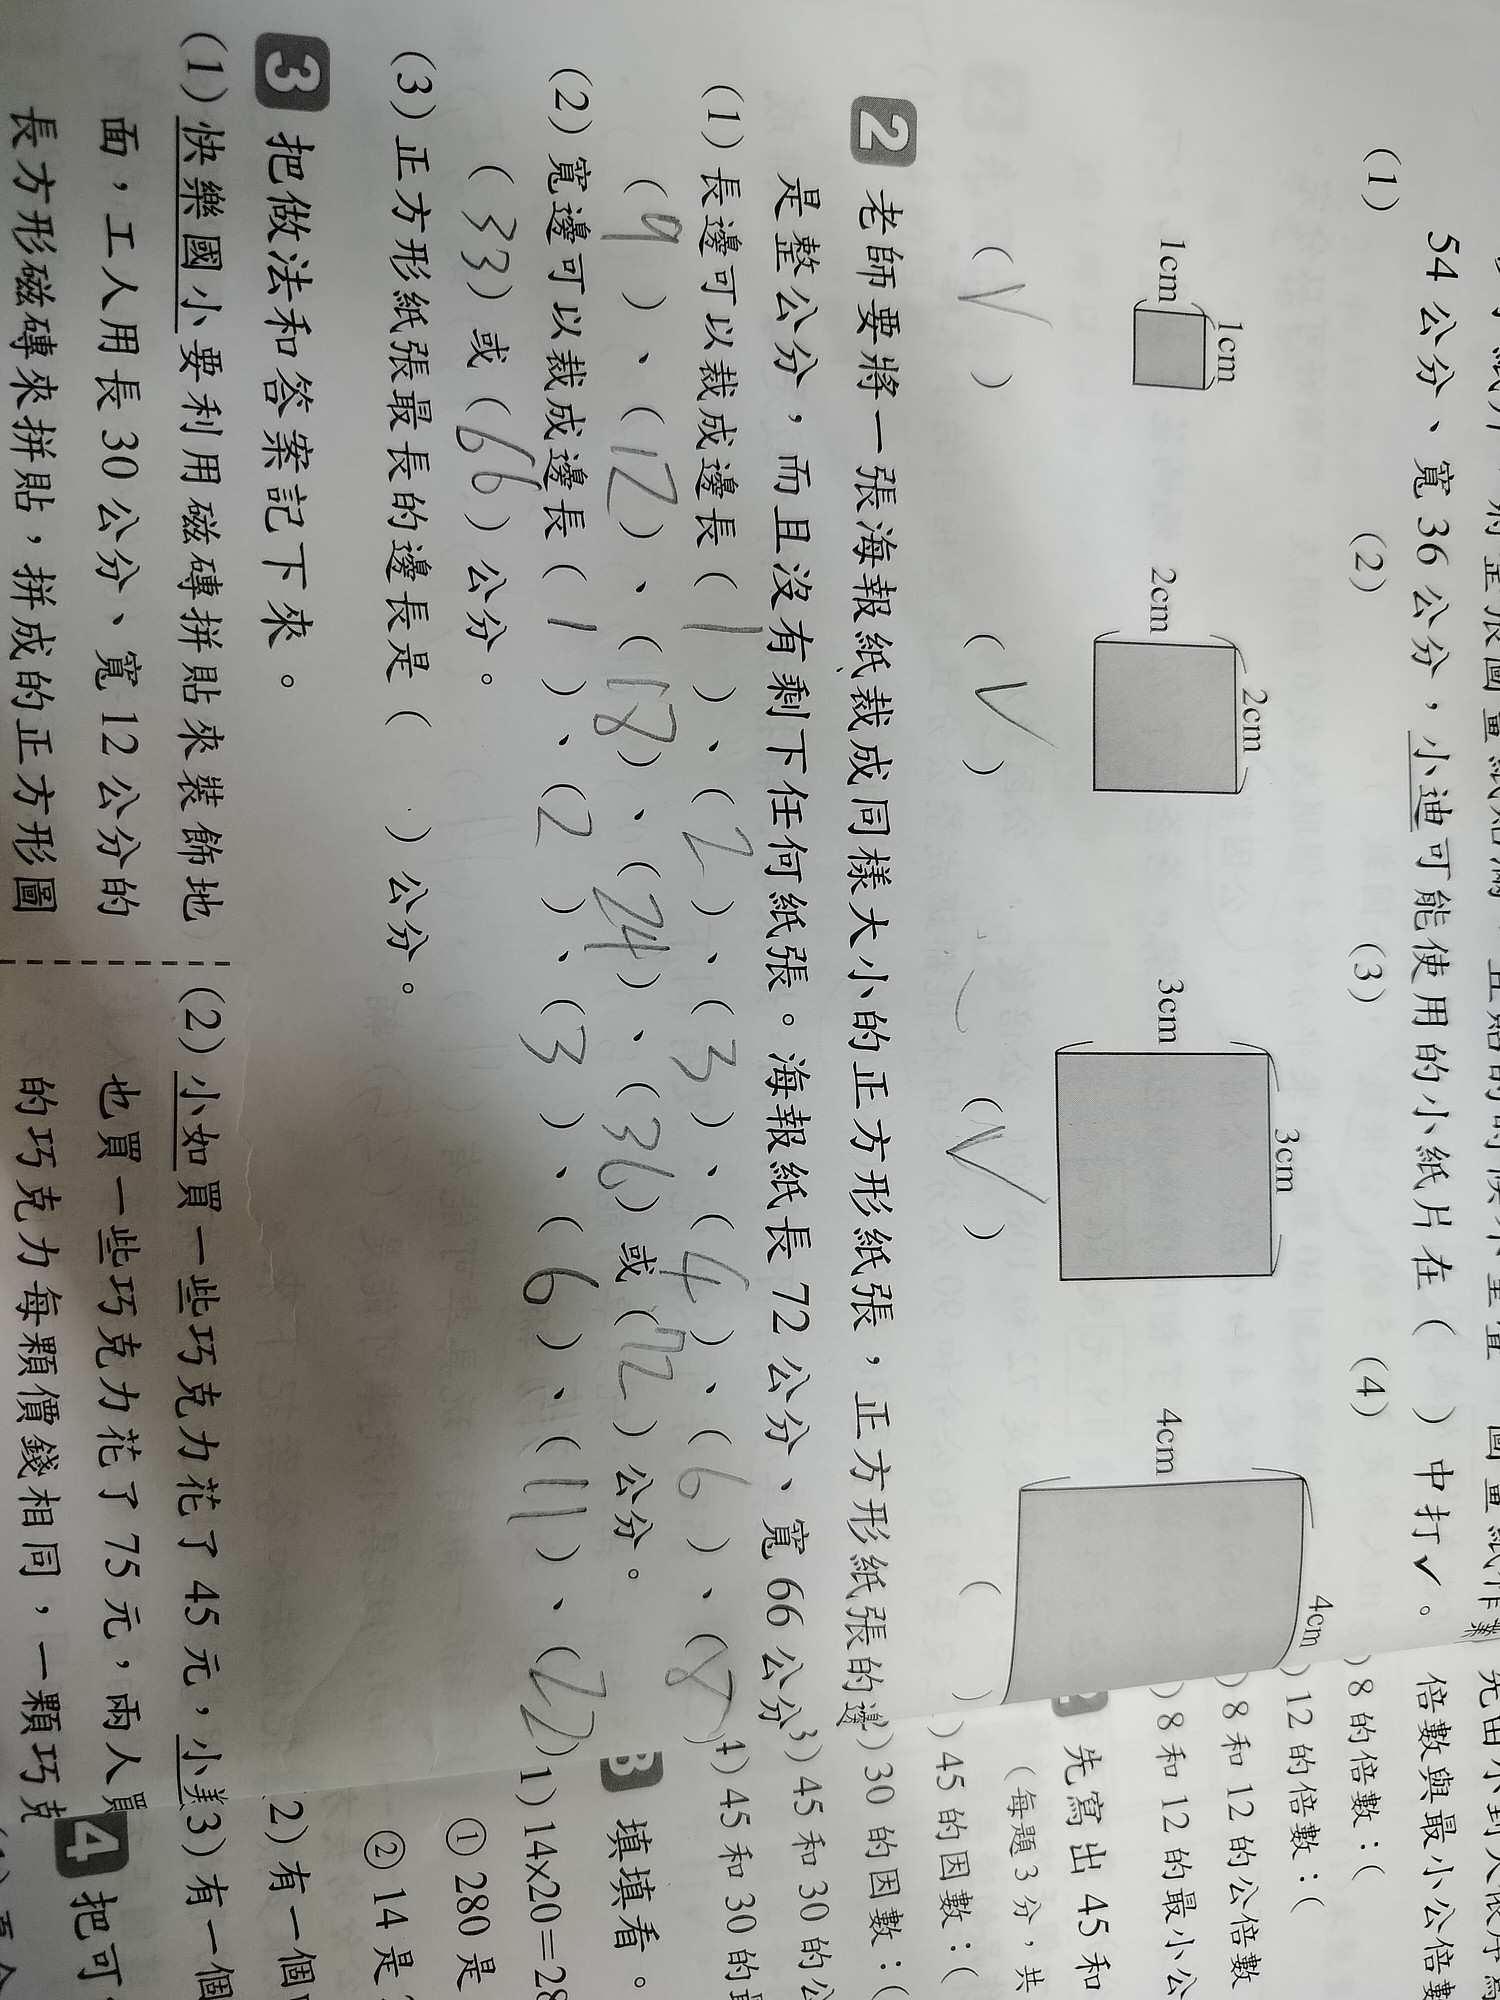 54公分、寬36公分，小迪可能使用的小紙片在( )中打✓。
(1) (2) (3) (4)
1cm 1cm 2cm 2cm 3cm 3cm 4cm 4cm
(V) (V) (V) ( )
2 老師要將一張海報紙裁成同樣大小的正方形紙張，正方形紙張的邊
是整公分，而且沒有剩下任何紙張。海報紙長72公分、寬66公分
(1)長邊可以裁成邊長(1)、(2)、(3)、(4)、(6)、(8)
(9)、(12)、(18)、(24)、(36)或(72)公分。
(2)寬邊可以裁成邊長(1)、(2)、(3)、(6)、(11)、(22)
(33)或(66)公分。
(3)正方形紙張最長的邊長是( )公分。
3 把做法和答案記下來。
(1)快樂國小要利用磁磚拼貼來裝飾地
面，工人用長30公分、寬12公分的
長方形磁磚來拼貼，拼成的正方形圖
(2)小如買一些巧克力花了45元，小美
也買一些巧克力花了75元，兩人買
的巧克力每顆價錢相同，一顆巧克
倍數與最小公倍數
)8的倍數：(
)12的倍數：(
)8和12的公倍數
)8和12的最小公
先寫出45和
(每題3分，共
)45的因數：(
)30的因數：(
3)45和30的公
4)45和30的最
3 填填看。
1)14×20=28
①280是
②14是
2)有一個
3)有一個
4 把可